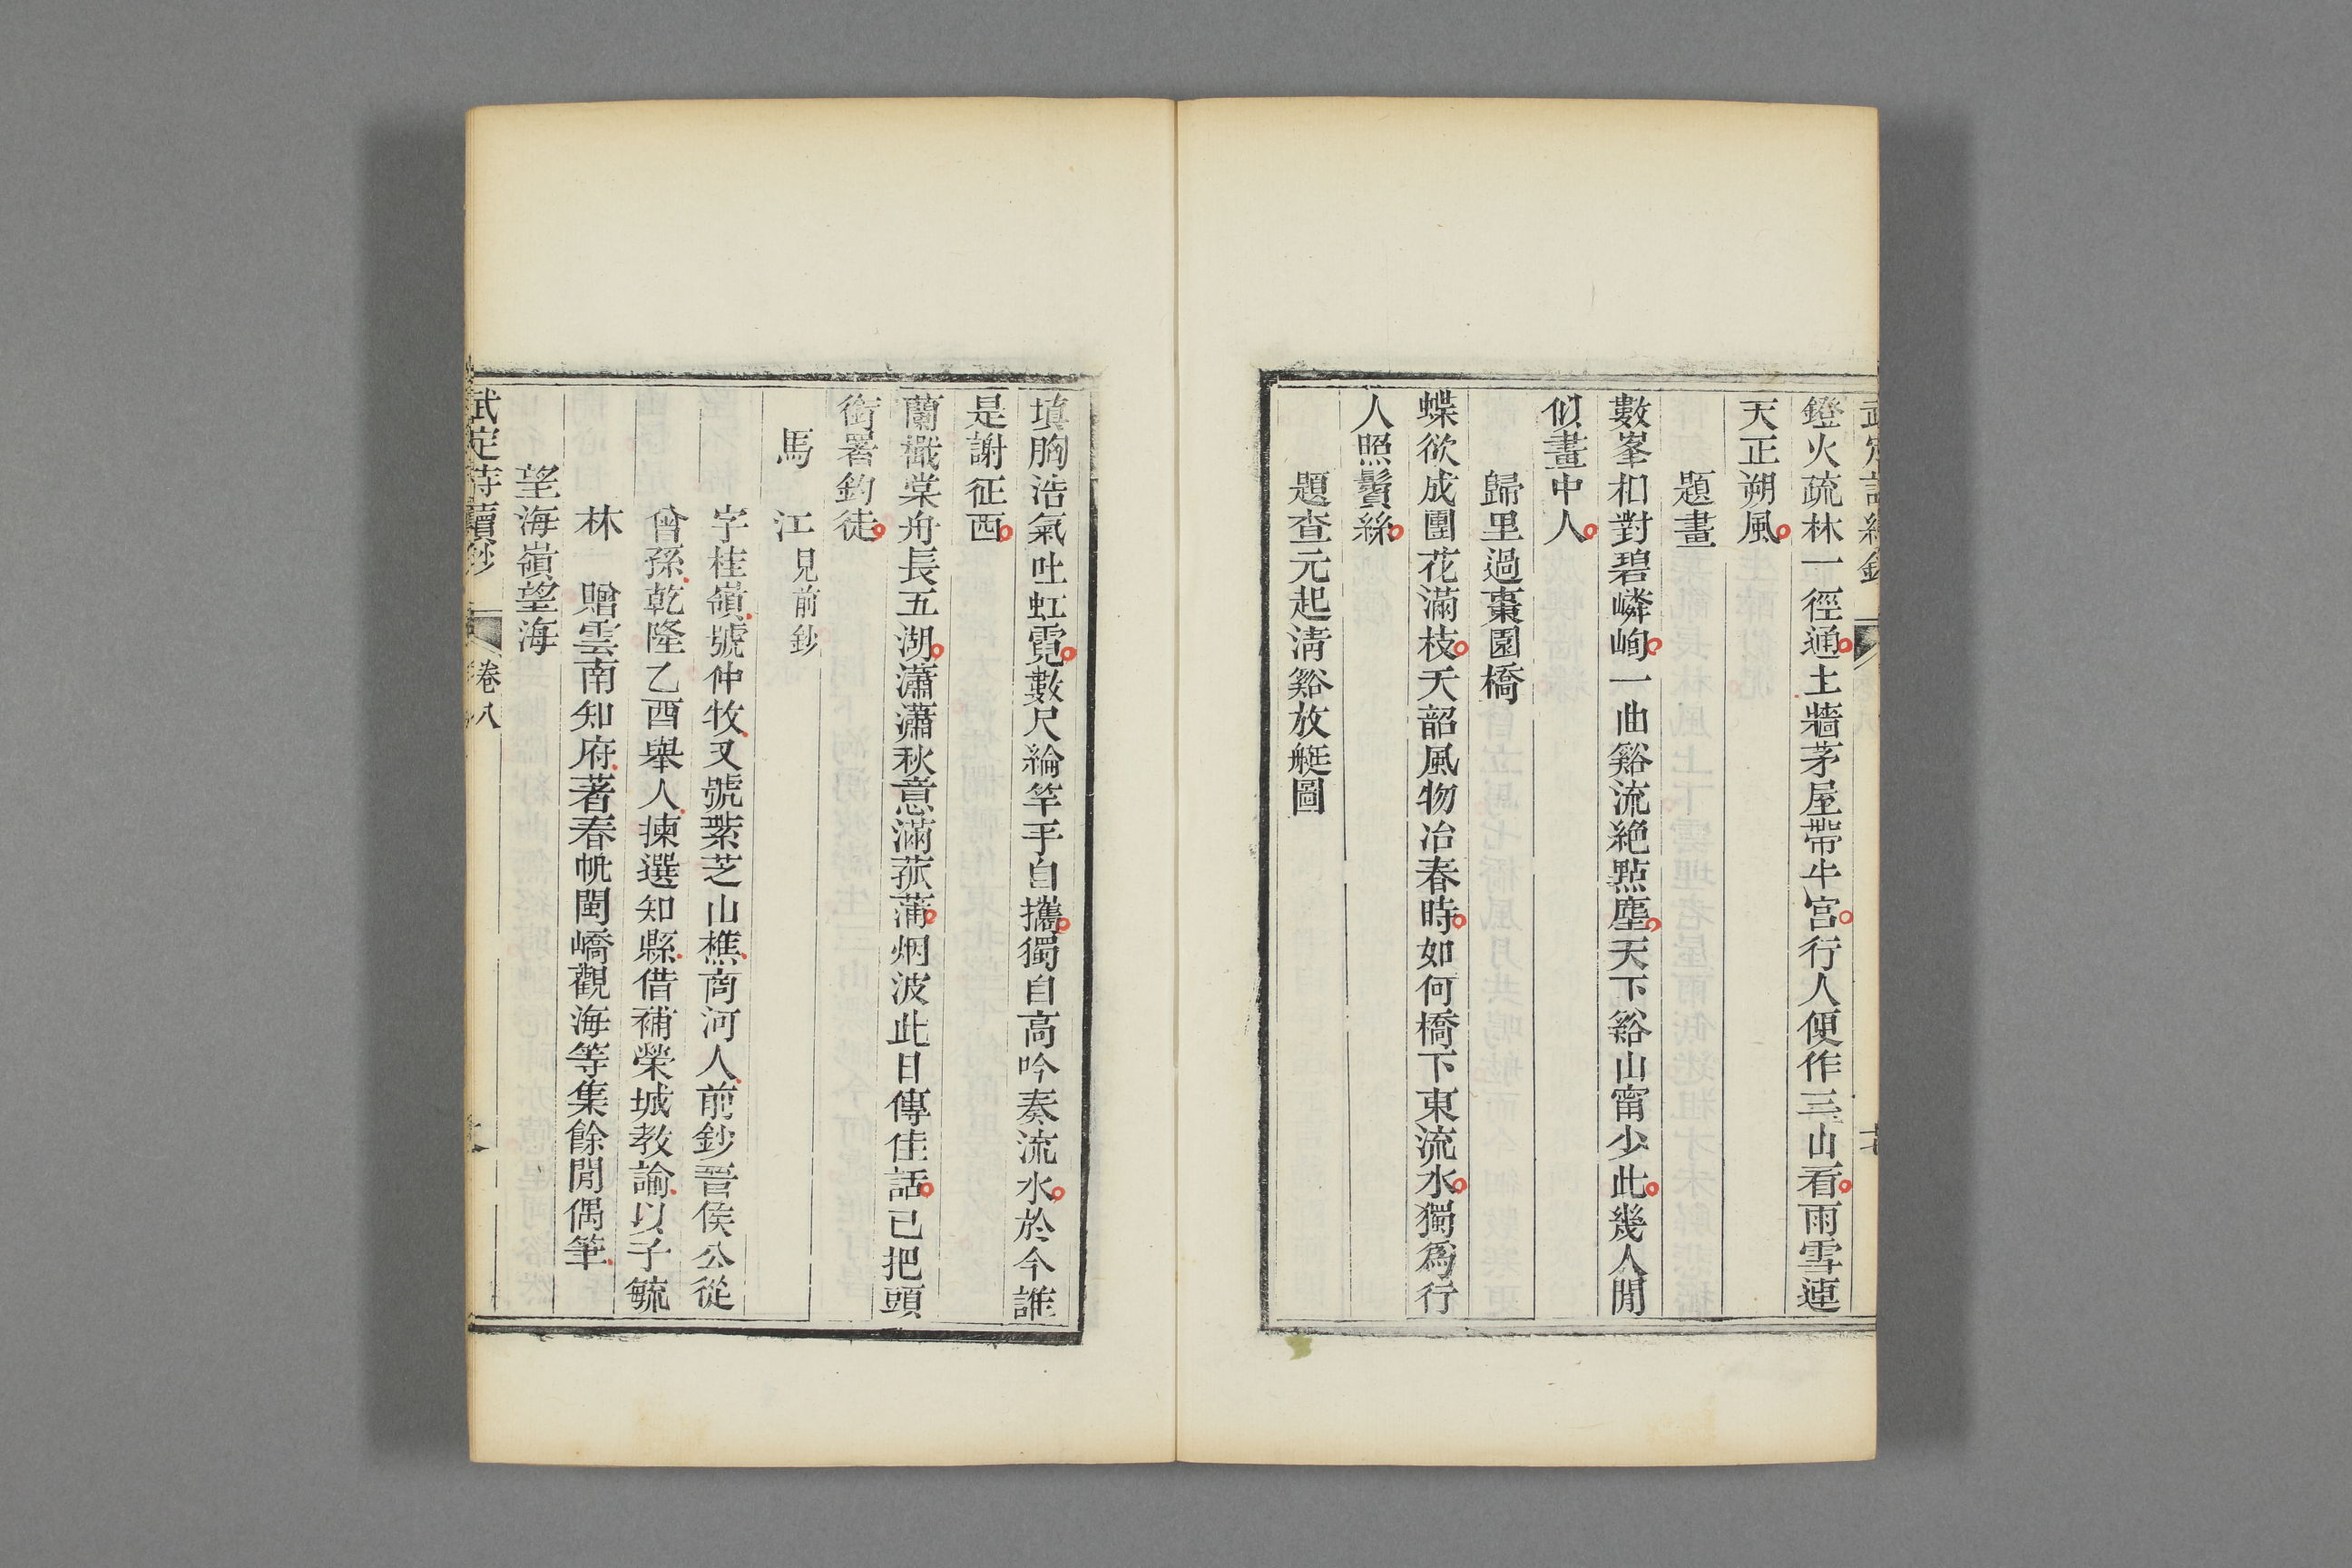 鐙火疏林一徑通土牆茅屋帶牛宫行人便作三山看雨雪連
天正朔風
題畫
數峯相對碧嶙峋一曲谿流絶點塵天下谿山甯少此幾人閒
似畫中人
歸里過棗園橋
蝶欲成團花滿枝天韶風物冶春時如何橋下東流水獨爲行
人照鬢絲
題查元起淸谿放艇圖
塡胸浩氣吐虹霓數尺綸竿手自攜獨自高吟奏流水於今誰
是謝征西
蘭檝棠舟長五湖瀟瀟秋意滿菰蒲烟波此日傳佳話已把頭
銜署釣徒
馬江見前鈔
字桂嶺號仲牧又號紫芝山樵商河人前鈔晉侯公從
曾孫乾隆乙酉舉人揀選知縣借補榮城教諭以子毓
林贈雲南知府著春帆閩嶠觀海等集餘閒偶筆
望海嶺望海
武定詩續鈔 卷八